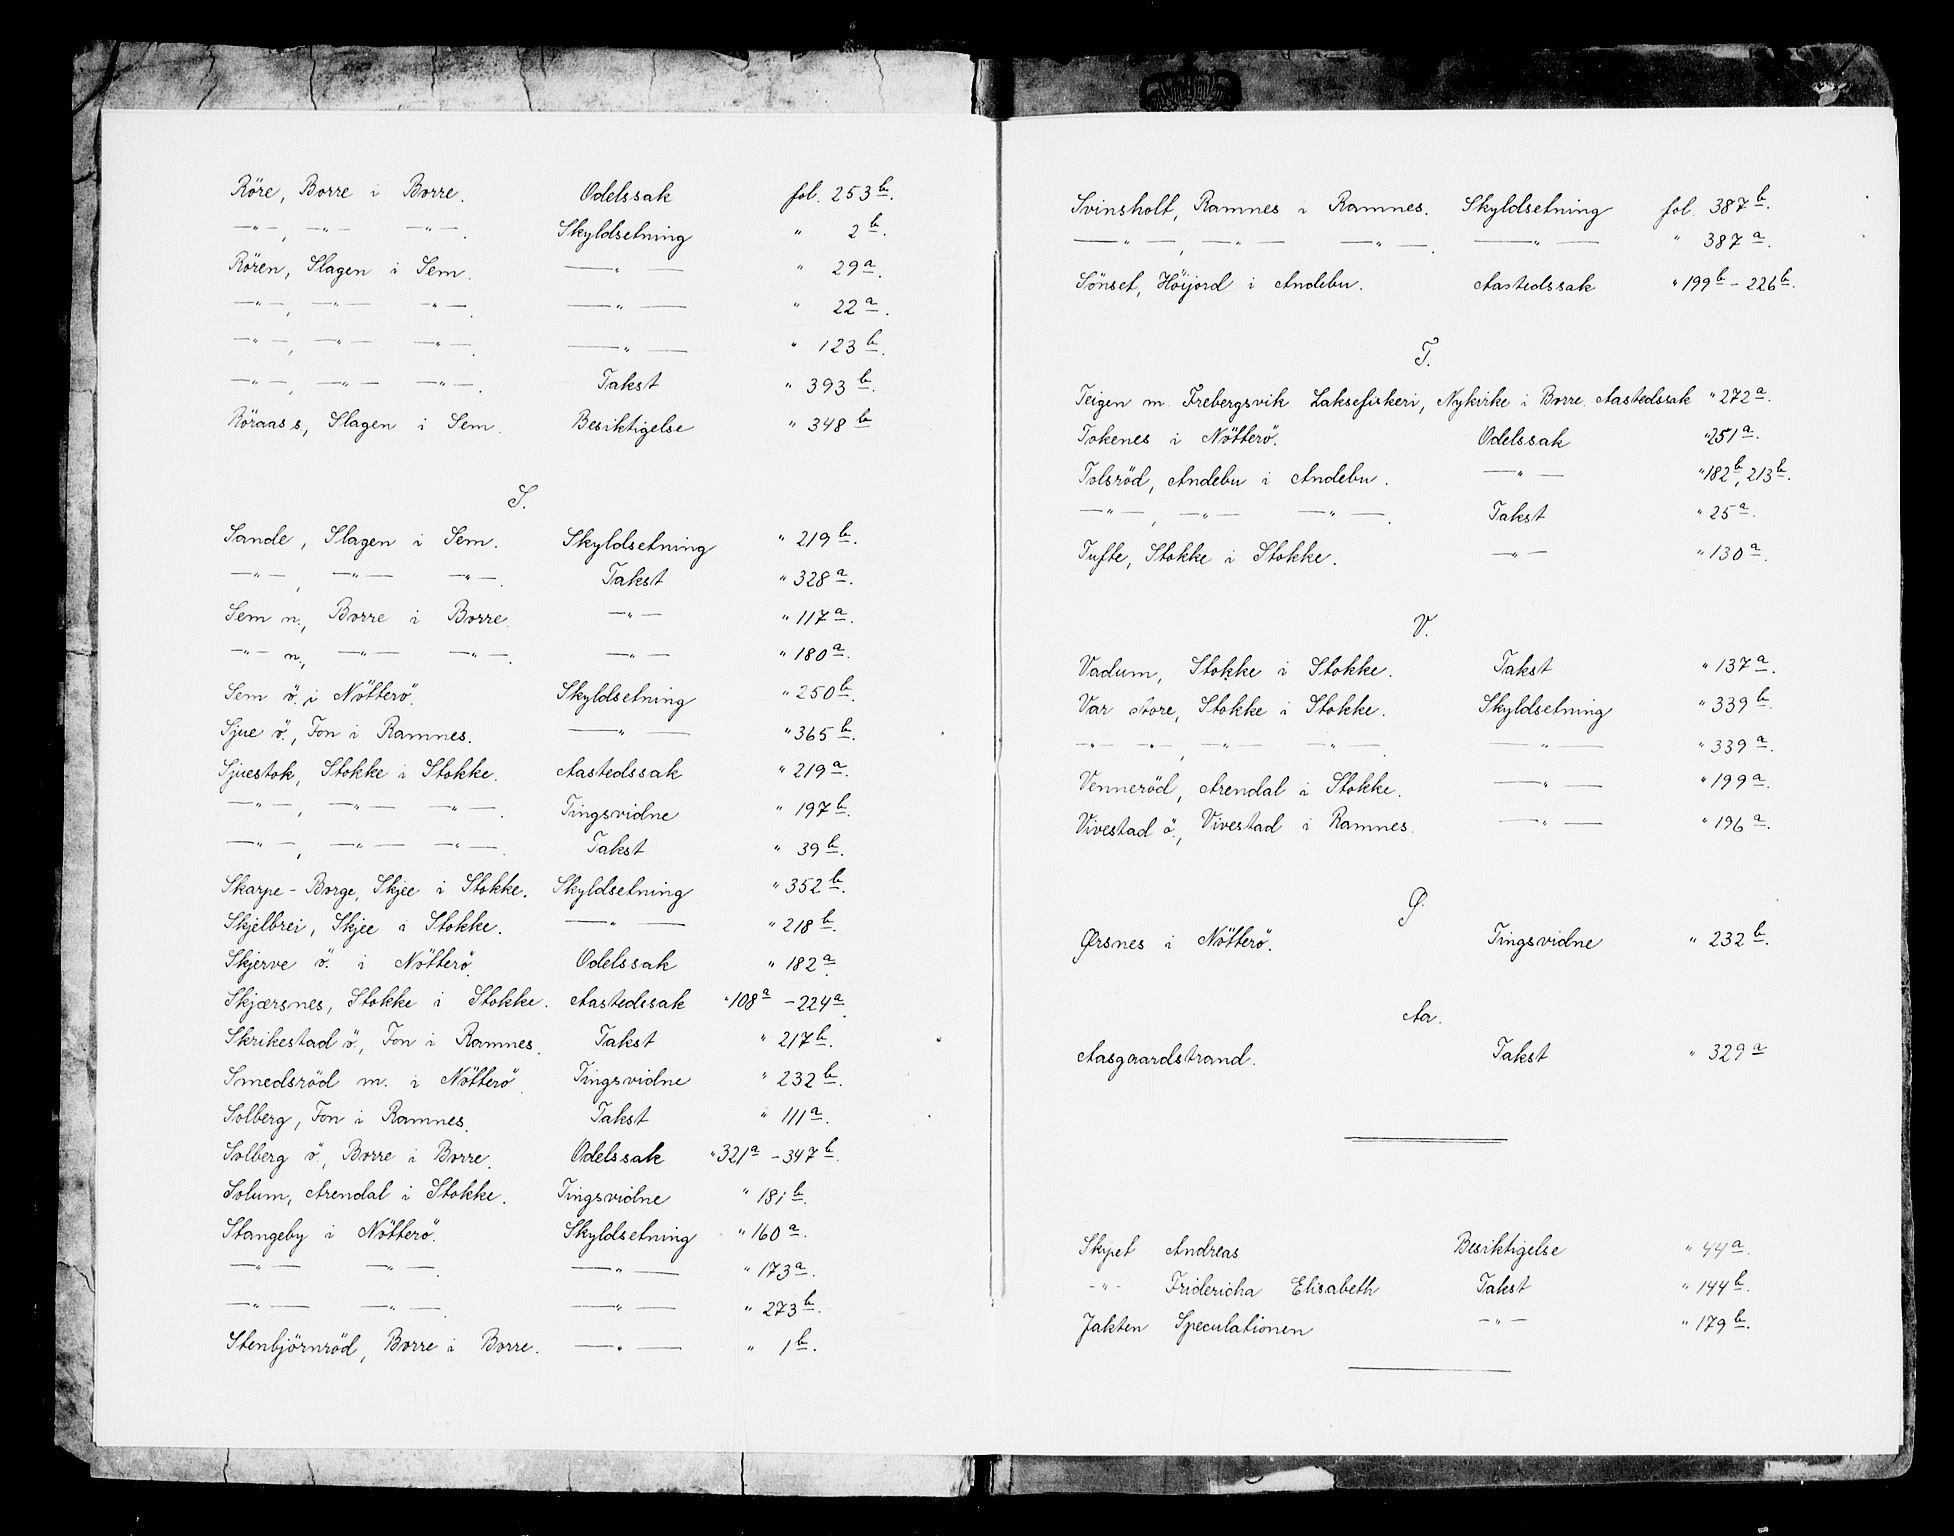 Röre, Borre i Borre. Odelssak fol. 253 b.
—"—, —"— —"—. Skyldsetning " 2 b.
Rören, Slagen i Sem. —"— " 29 a.
—"—, —"— —"—. —"— " 22 a.
—"—, —"— —"—. —"— " 123 b.
—"—, —"— —"—. Takst " 393 b.
Röraas s, Slagen i Sem. Besiktigelse " 348 b
S.
Sande, Slagen i Sem. Skyldsetning " 219 b.
—"—, —"— —"—. Takst " 328 a.
Sem n., Borre i Borre. —"— " 117 a.
—"— n., —"— —"—. —"— " 180 a.
Sem ö. i Nötterö. Skyldsetning " 250 b.
Sjue ö., Fon i Ramnes. —"— " 365 b.
Sjuestok, Stokke i Stokke. Aastedssak " 219 a.
—"—, —"— —"—. Tingsvidne " 197 b.
—"—, —"— —"—. Takst " 39 b.
Skarpe-Borge, Skjee i Stokke. Skyldsetning " 352 b.
Skjelbrei, Skjee i Stokke. —"— " 218 b.
Skjerve ö. i Nötterö. Odelssak " 182 a.
Skjærsnes, Stokke i Stokke. Aastedssak " 108 a - 224 a.
Skrikestad ö., Fon i Ramnes. Takst " 217 b.
Smedsröd m. i Nötterö. Tingsvidne " 232 b.
Solberg, Fon i Ramnes. Takst " 111 a.
Solberg ö., Borre i Borre. Odelssak " 321 a - 347 b.
Solum, Arendal i Stokke. Tingsvidne " 181 b.
Stangeby i Nötterö. Skyldsetning " 160 a.
—"— —"—. —"— " 173 a.
—"— —"—. —"— " 273 b.
Stenbjörnröd, Borre i Borre. —"— " 1 b.
Svinsholt, Ramnes i Ramnes. Skyldsetning fol. 387 b.
—"—, —"— —"—. —"— " 387 a.
Sönset, Höijord i Andebu. Aastedssak " 199 b - 226 b.
T.
Teigen m. Frebergsvik Laksefiskeri, Nykirke i Borre. Aastedssak " 272 a.
Tokenes i Nötterö. Odelssak " 251 a.
Tolsröd, Andebu i Andebu. —"— " 182 b, 213 b.
—"—, —"— —"—. Takst " 25 a.
Tufte, Stokke i Stokke. —"— " 130 a.
V.
Vadum, Stokke i Stokke. Takst " 137 a.
Var store, Stokke i Stokke. Skyldsetning " 339 b.
—"— —"—, —"— —"—. —"— " 339 a.
Venneröd, Arendal i Stokke. —"— " 199 a.
Vivestad ö., Vivestad i Ramnes. —"— " 196 a.
Ø.
Ørsnes i Nötterö. Tingsvidne " 232 b.
Aa.
Aasgaardstrand. Takst " 329 a
Skipet Andreas Besiktigelse " 44 a.
-"- Fridericha Elisabeth Takst " 144 b.
Jakten Speculationen —"— " 179 b.